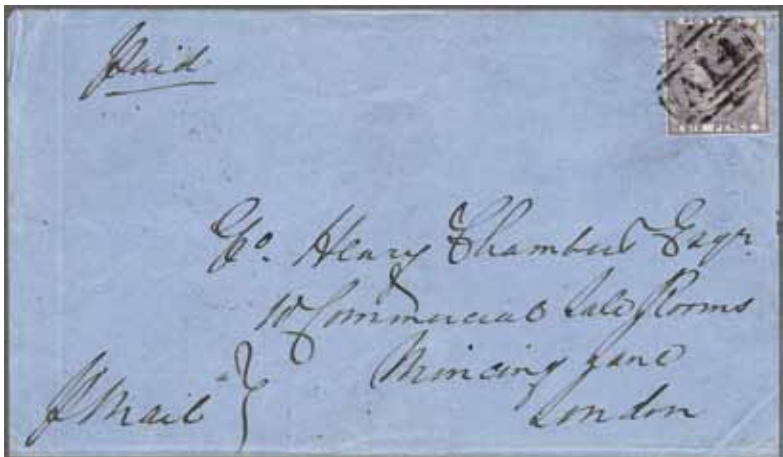 Paid
A14
SIX PENCE
Geo. Henry Chambers Esqr.
10 Commercial Sale Rooms
Mincing Lane
London
P Mail